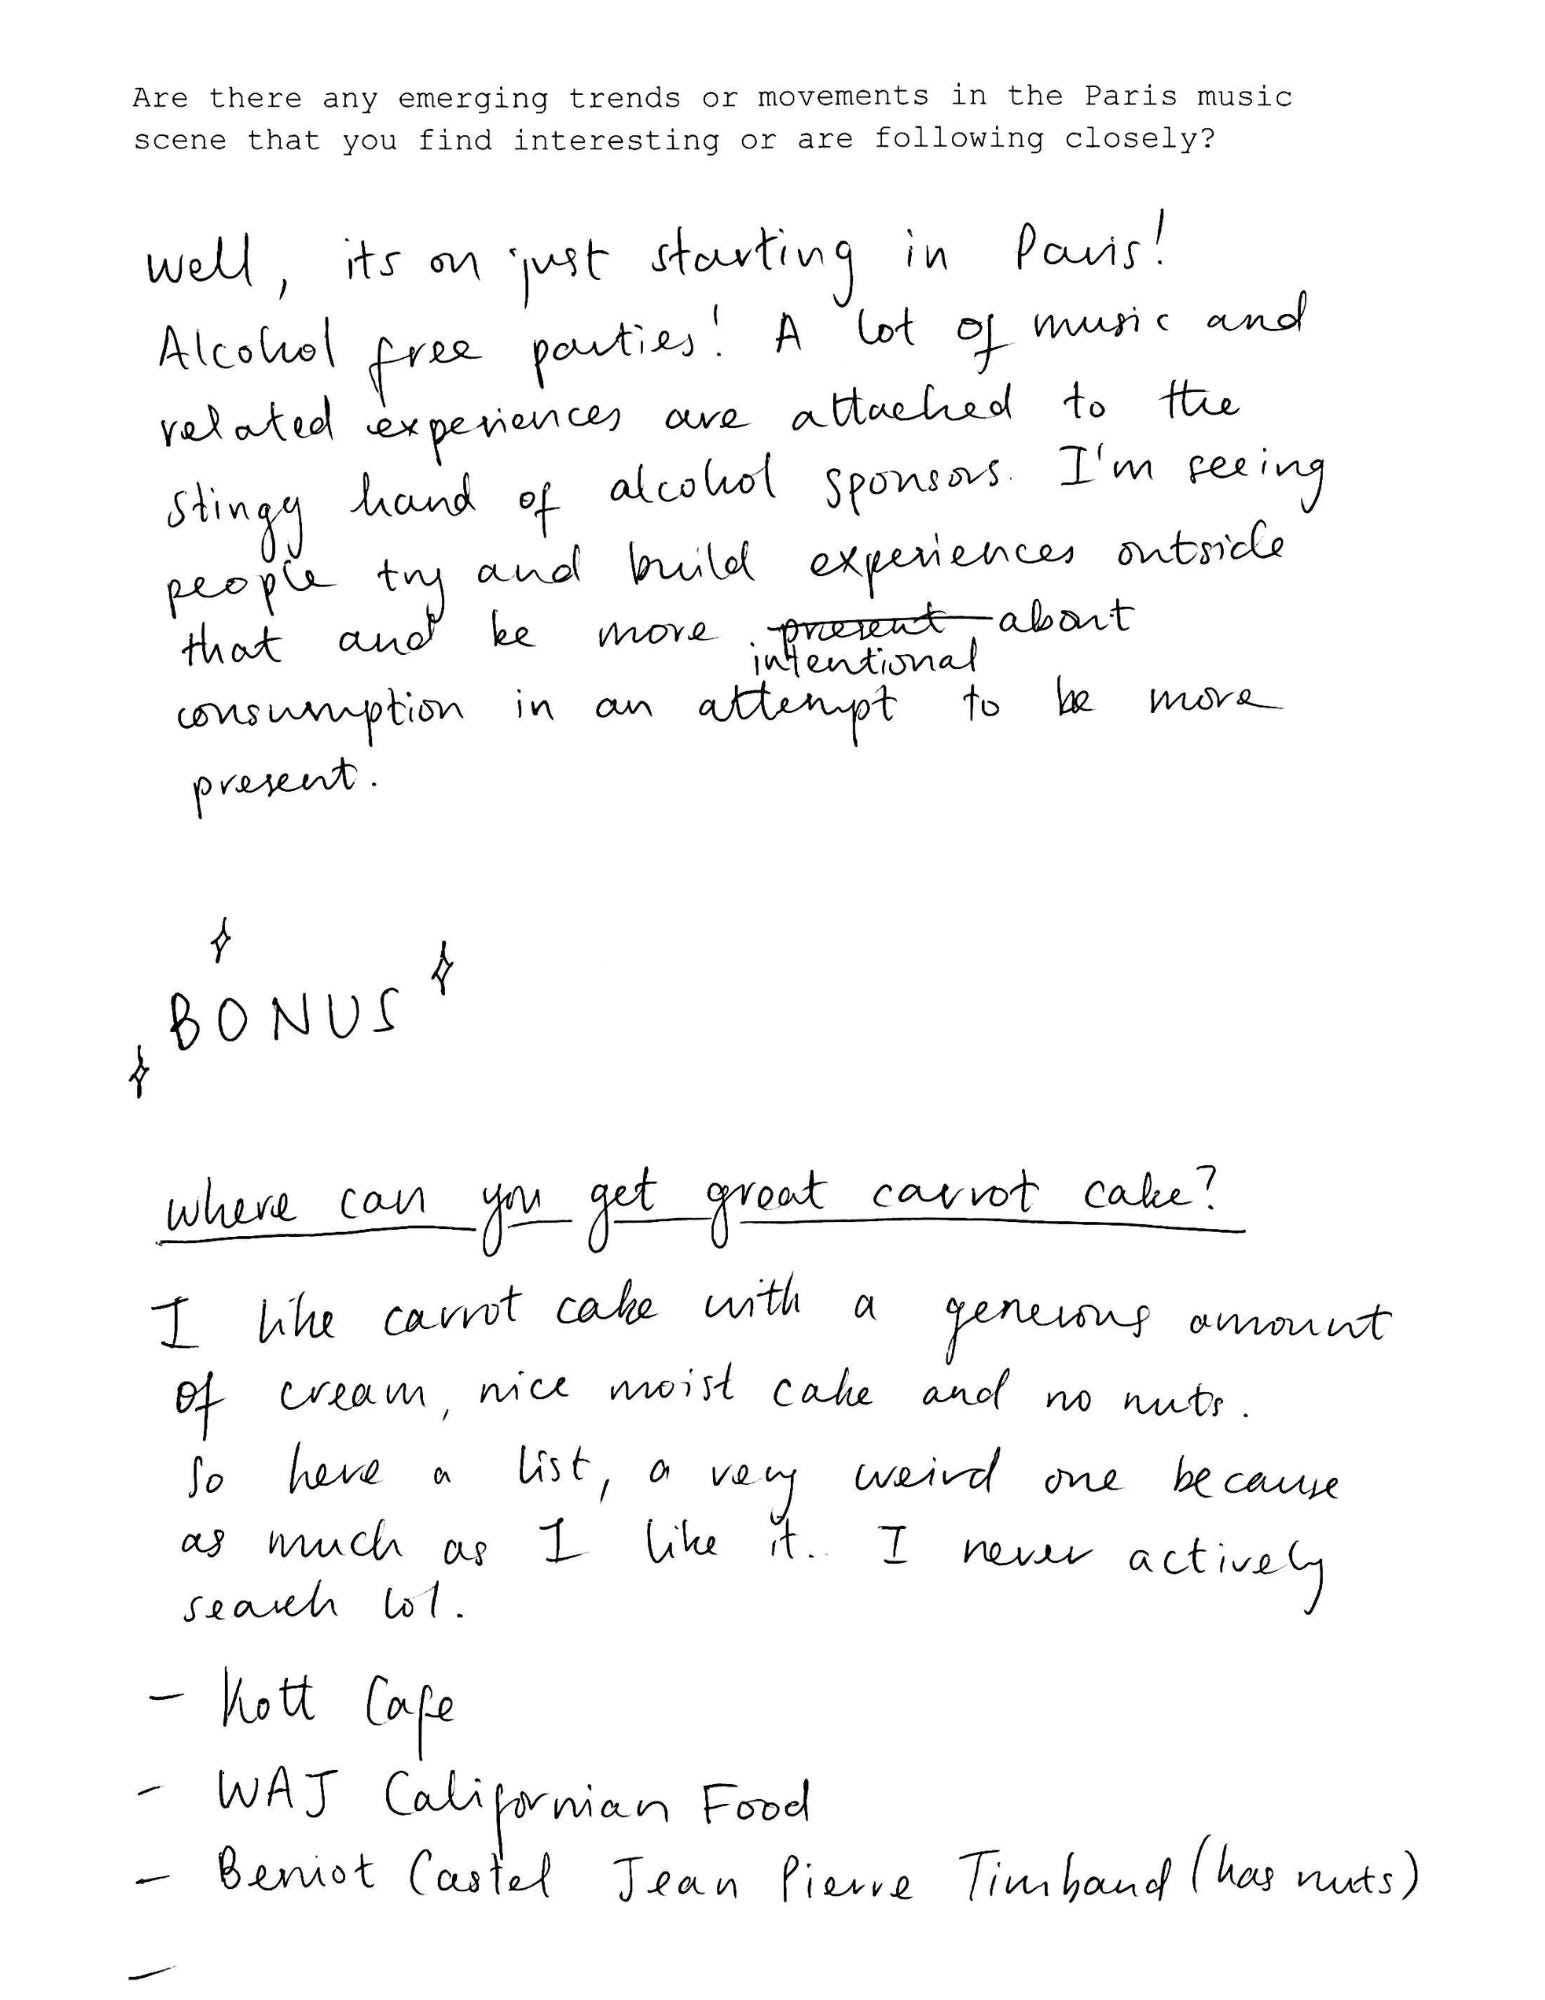 Are there any emerging trends or movements in the Paris music
scene that you find interesting or are following closely?
Well, its on just starting in Paris!
Alcohol free parties! A lot of music and
related experiences are attached to the
stingy hand of alcohol sponsors. I'm seeing
people try and build experiences outside
that and be more present about
intentional
consumption in an attempt to be more
present.
BONUS
where can you get great carrot cake?
I like carrot cake with a generous amount
of cream, nice moist cake and no nuts.
So here a list, a very weird one because
as much as I like it.. I never actively
search lol.
- Kott Cafe
- WAJ Californian Food
- Beniot Castel Jean Pierre Timbaud (has nuts)
-